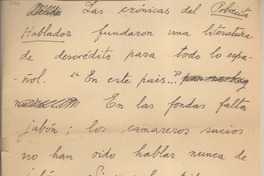 Las crónicas del Pobrecito
Hablador fundaron una literatura
de descrédito para todo lo espa-
ñol. "En este pais..."
En las fondas falta
jabón; los camareros sucios
no han oido hablar nunca de
jabón.